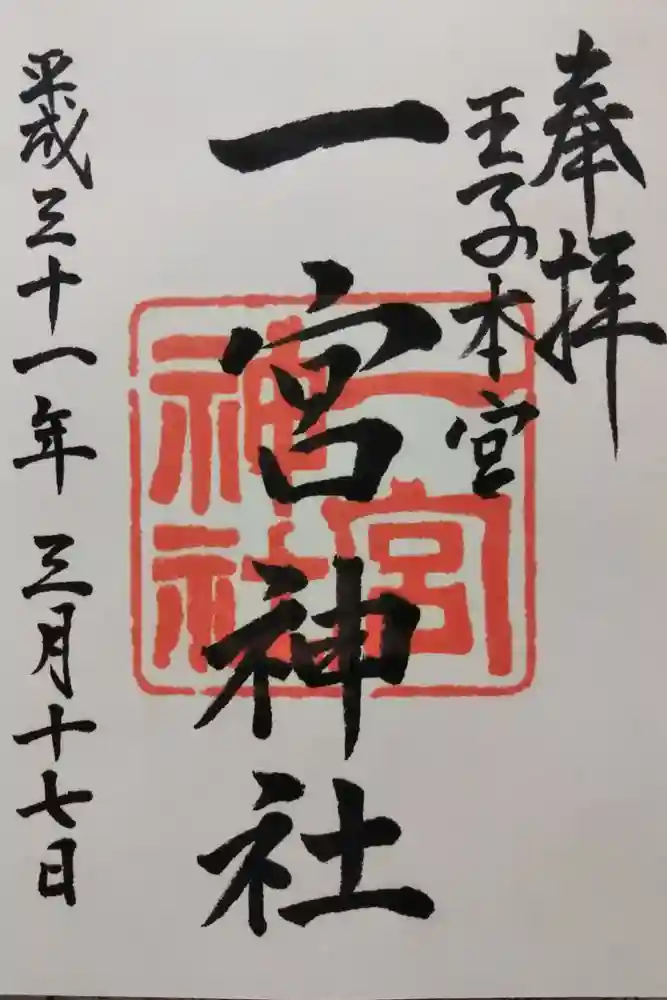 奉拝
王子本宮
一宮神社
一宮
神社
平成三十一年三月十七日